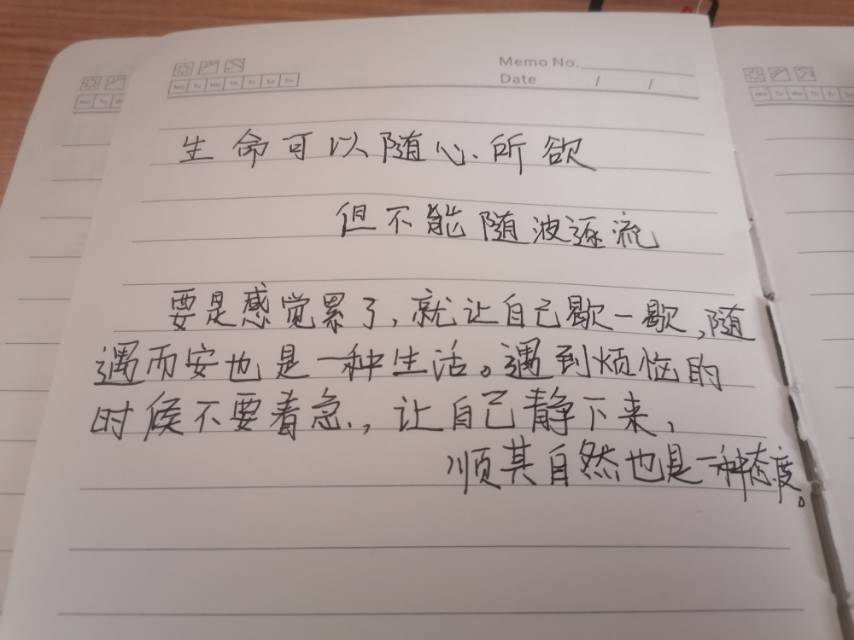 Memo No.
Date / /
Mo Tu We Th Fr Sa Su
生命可以随心所欲
但不能随波逐流
要是感觉累了,就让自己歇一歇,随
遇而安也是一种生活。遇到烦恼的
时候不要着急,让自己静下来,
顺其自然也是一种态度。